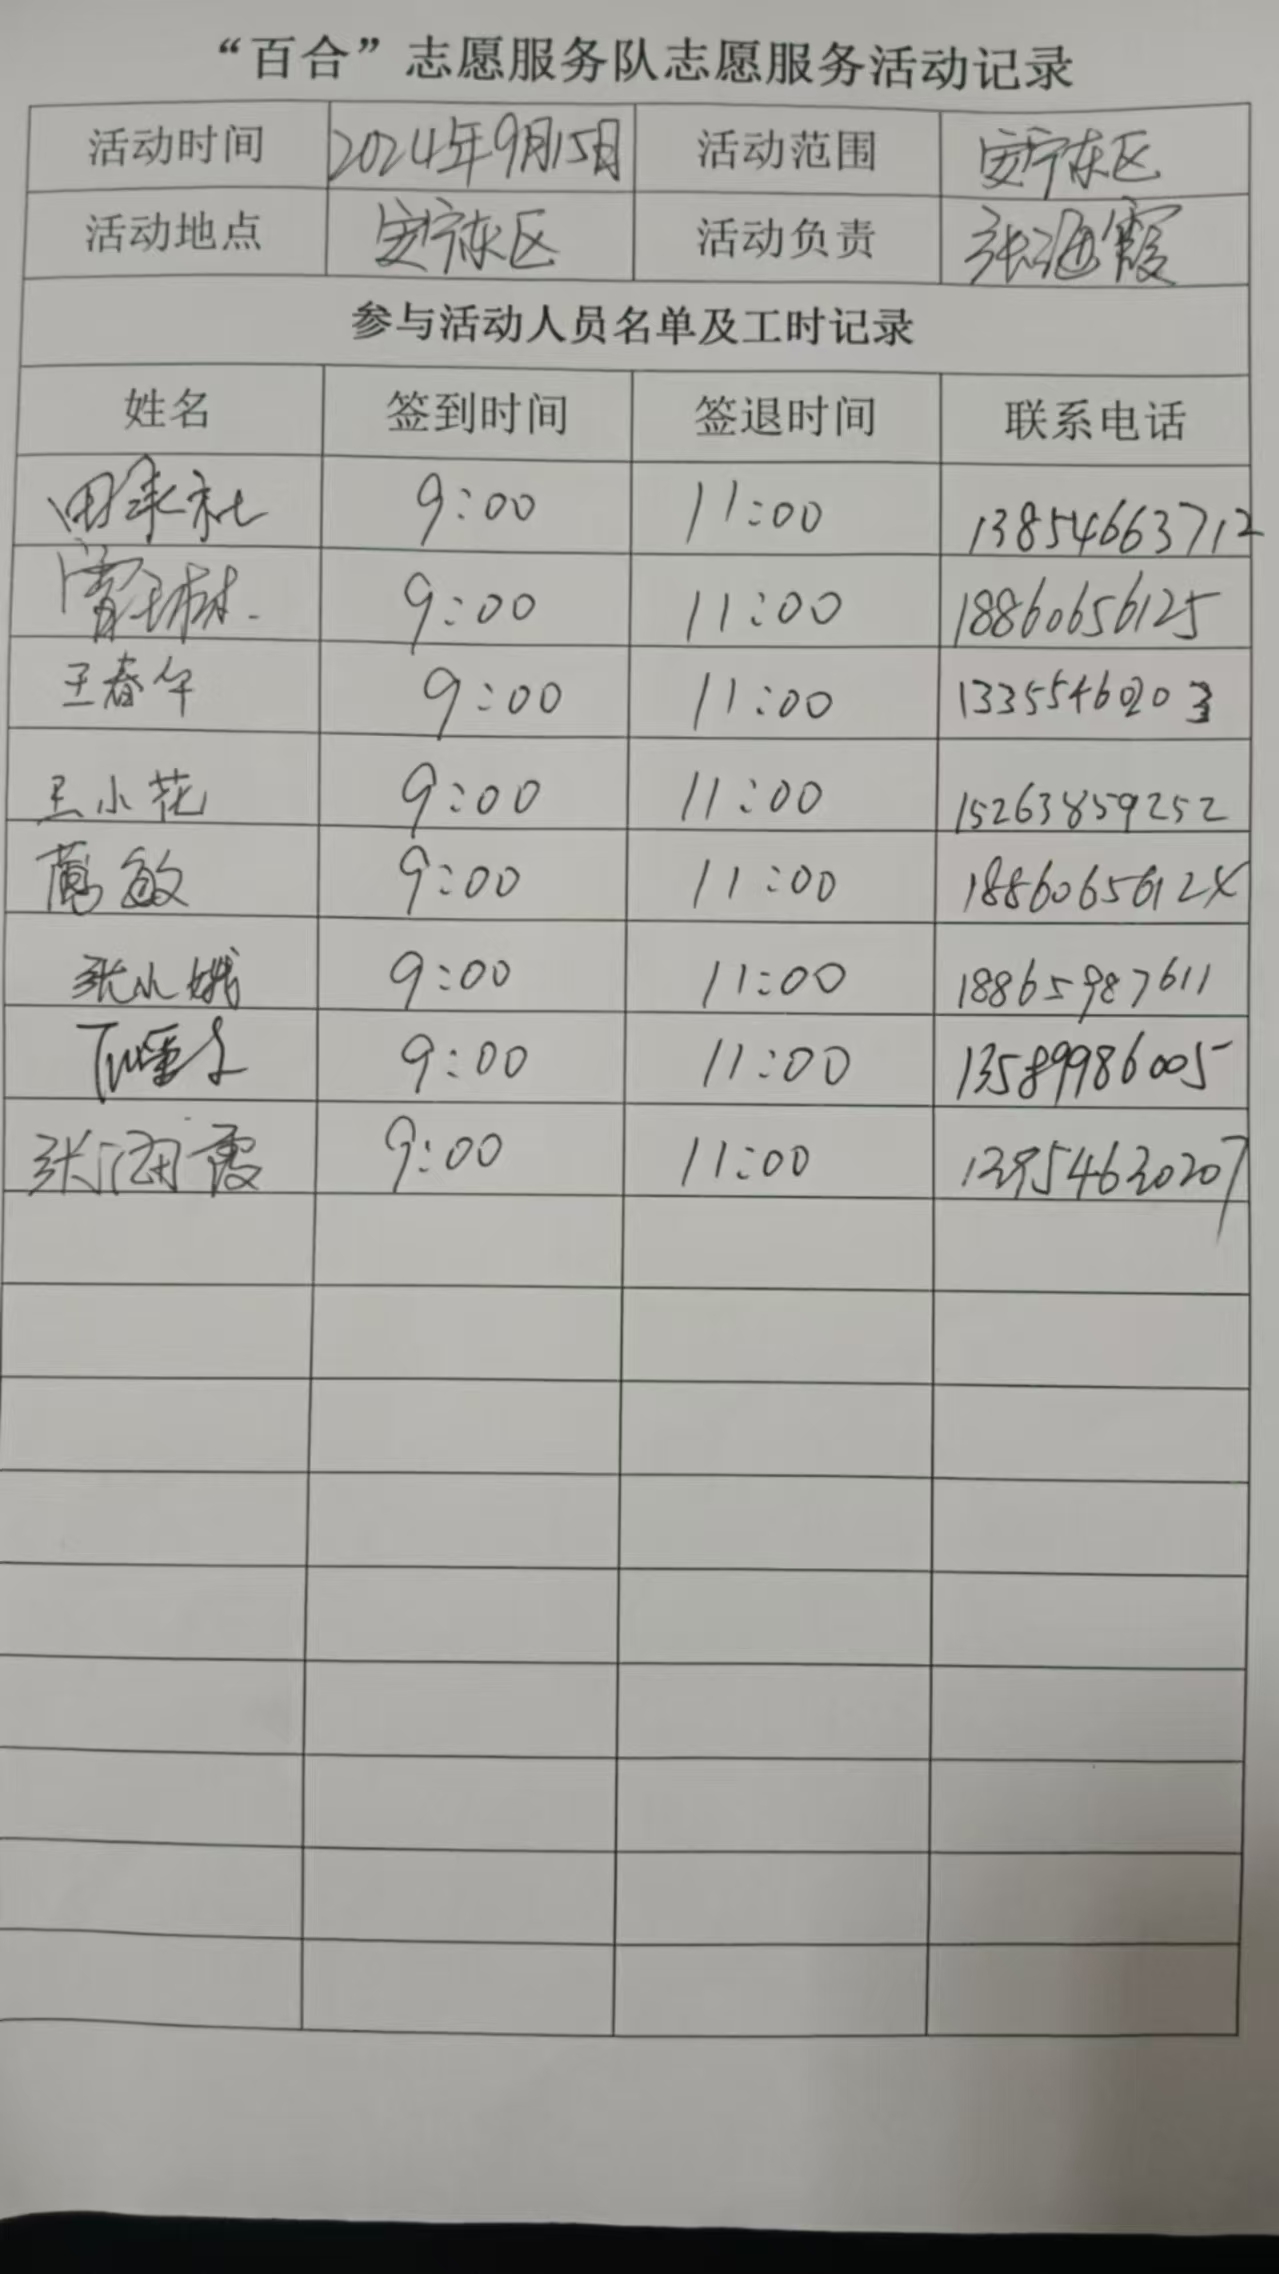 “百合”志愿服务队志愿服务活动记录
活动时间 2024年9月15日 活动范围 安宁东区
活动地点 安宁东区 活动负责 张海霞
参与活动人员名单及工时记录
姓名 签到时间 签退时间 联系电话
田承社 9:00 11:00 13854663712
9:00 11:00 18860656125
王春午 9:00 11:00
王小花 9:00 11:00 15263859252
敏 9:00 11:00
张小娥 9:00 11:00 18865987611
9:00 11:00 13589986005
张海霞 9:00 11:00